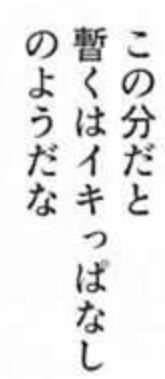 この分だと
暫くはイキっぱなし
のようだな